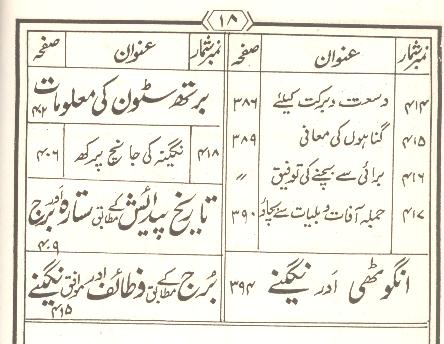 ۱۸
نمبر شمار عنوان صفحہ
۴۱۴ وسعت و برکت کیلئے ۳۸۶
۴۱۵ گناہوں کی معافی ۳۸۹
۴۱۶ برائی سے بچنے کی توفیق 〃
۴۱۷ جملہ آفات و بلیات سے بچاؤ ۳۹۰
انگوٹھی اور نگینے ۳۹۴
نمبر شمار عنوان صفحہ
برتھ سٹون کی معلومات ۴۰۲
۴۱۸ نگینہ کی جانچ پرکھ ۴۰۶
تاریخ پیدائش کے مطابق ستارہ اور برج ۴۰۹
برج کے مطابق وظائف اور موافق نگینے ۴۱۵